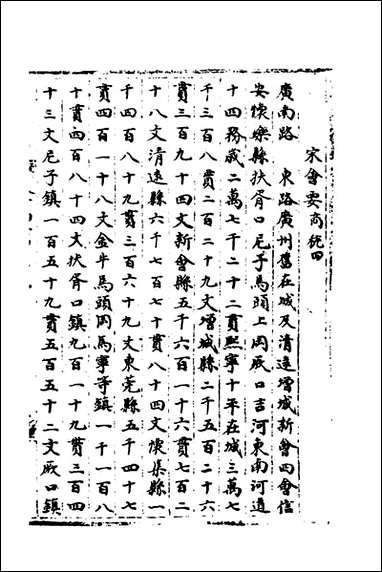 宋會要 商稅四
廣南路 東路廣州舊在城及清遠增城新會四會信
安懷樂縣扶胥口尼子馬頭上岡厰口吉河東南河道
十四務歲二萬七千二十二貫熙寧十年在城三萬七
千三百八貫二百二十九文增城縣二千五百二十六
貫三百九十四文新會縣五千六百一十六貫七百二
十八文清遠縣六千七百七十貫八十四文懷集縣一
千四百八十九貫三百六十九文東莞縣五千四十七
貫四百一十八文金牛馬頭岡馬寧等鎮一千一百八
十貫四百八十四文扶胥口鎮九百一十九貫三百四
十三文尼子鎮一百五十九貫五百五十二文厰口鎮